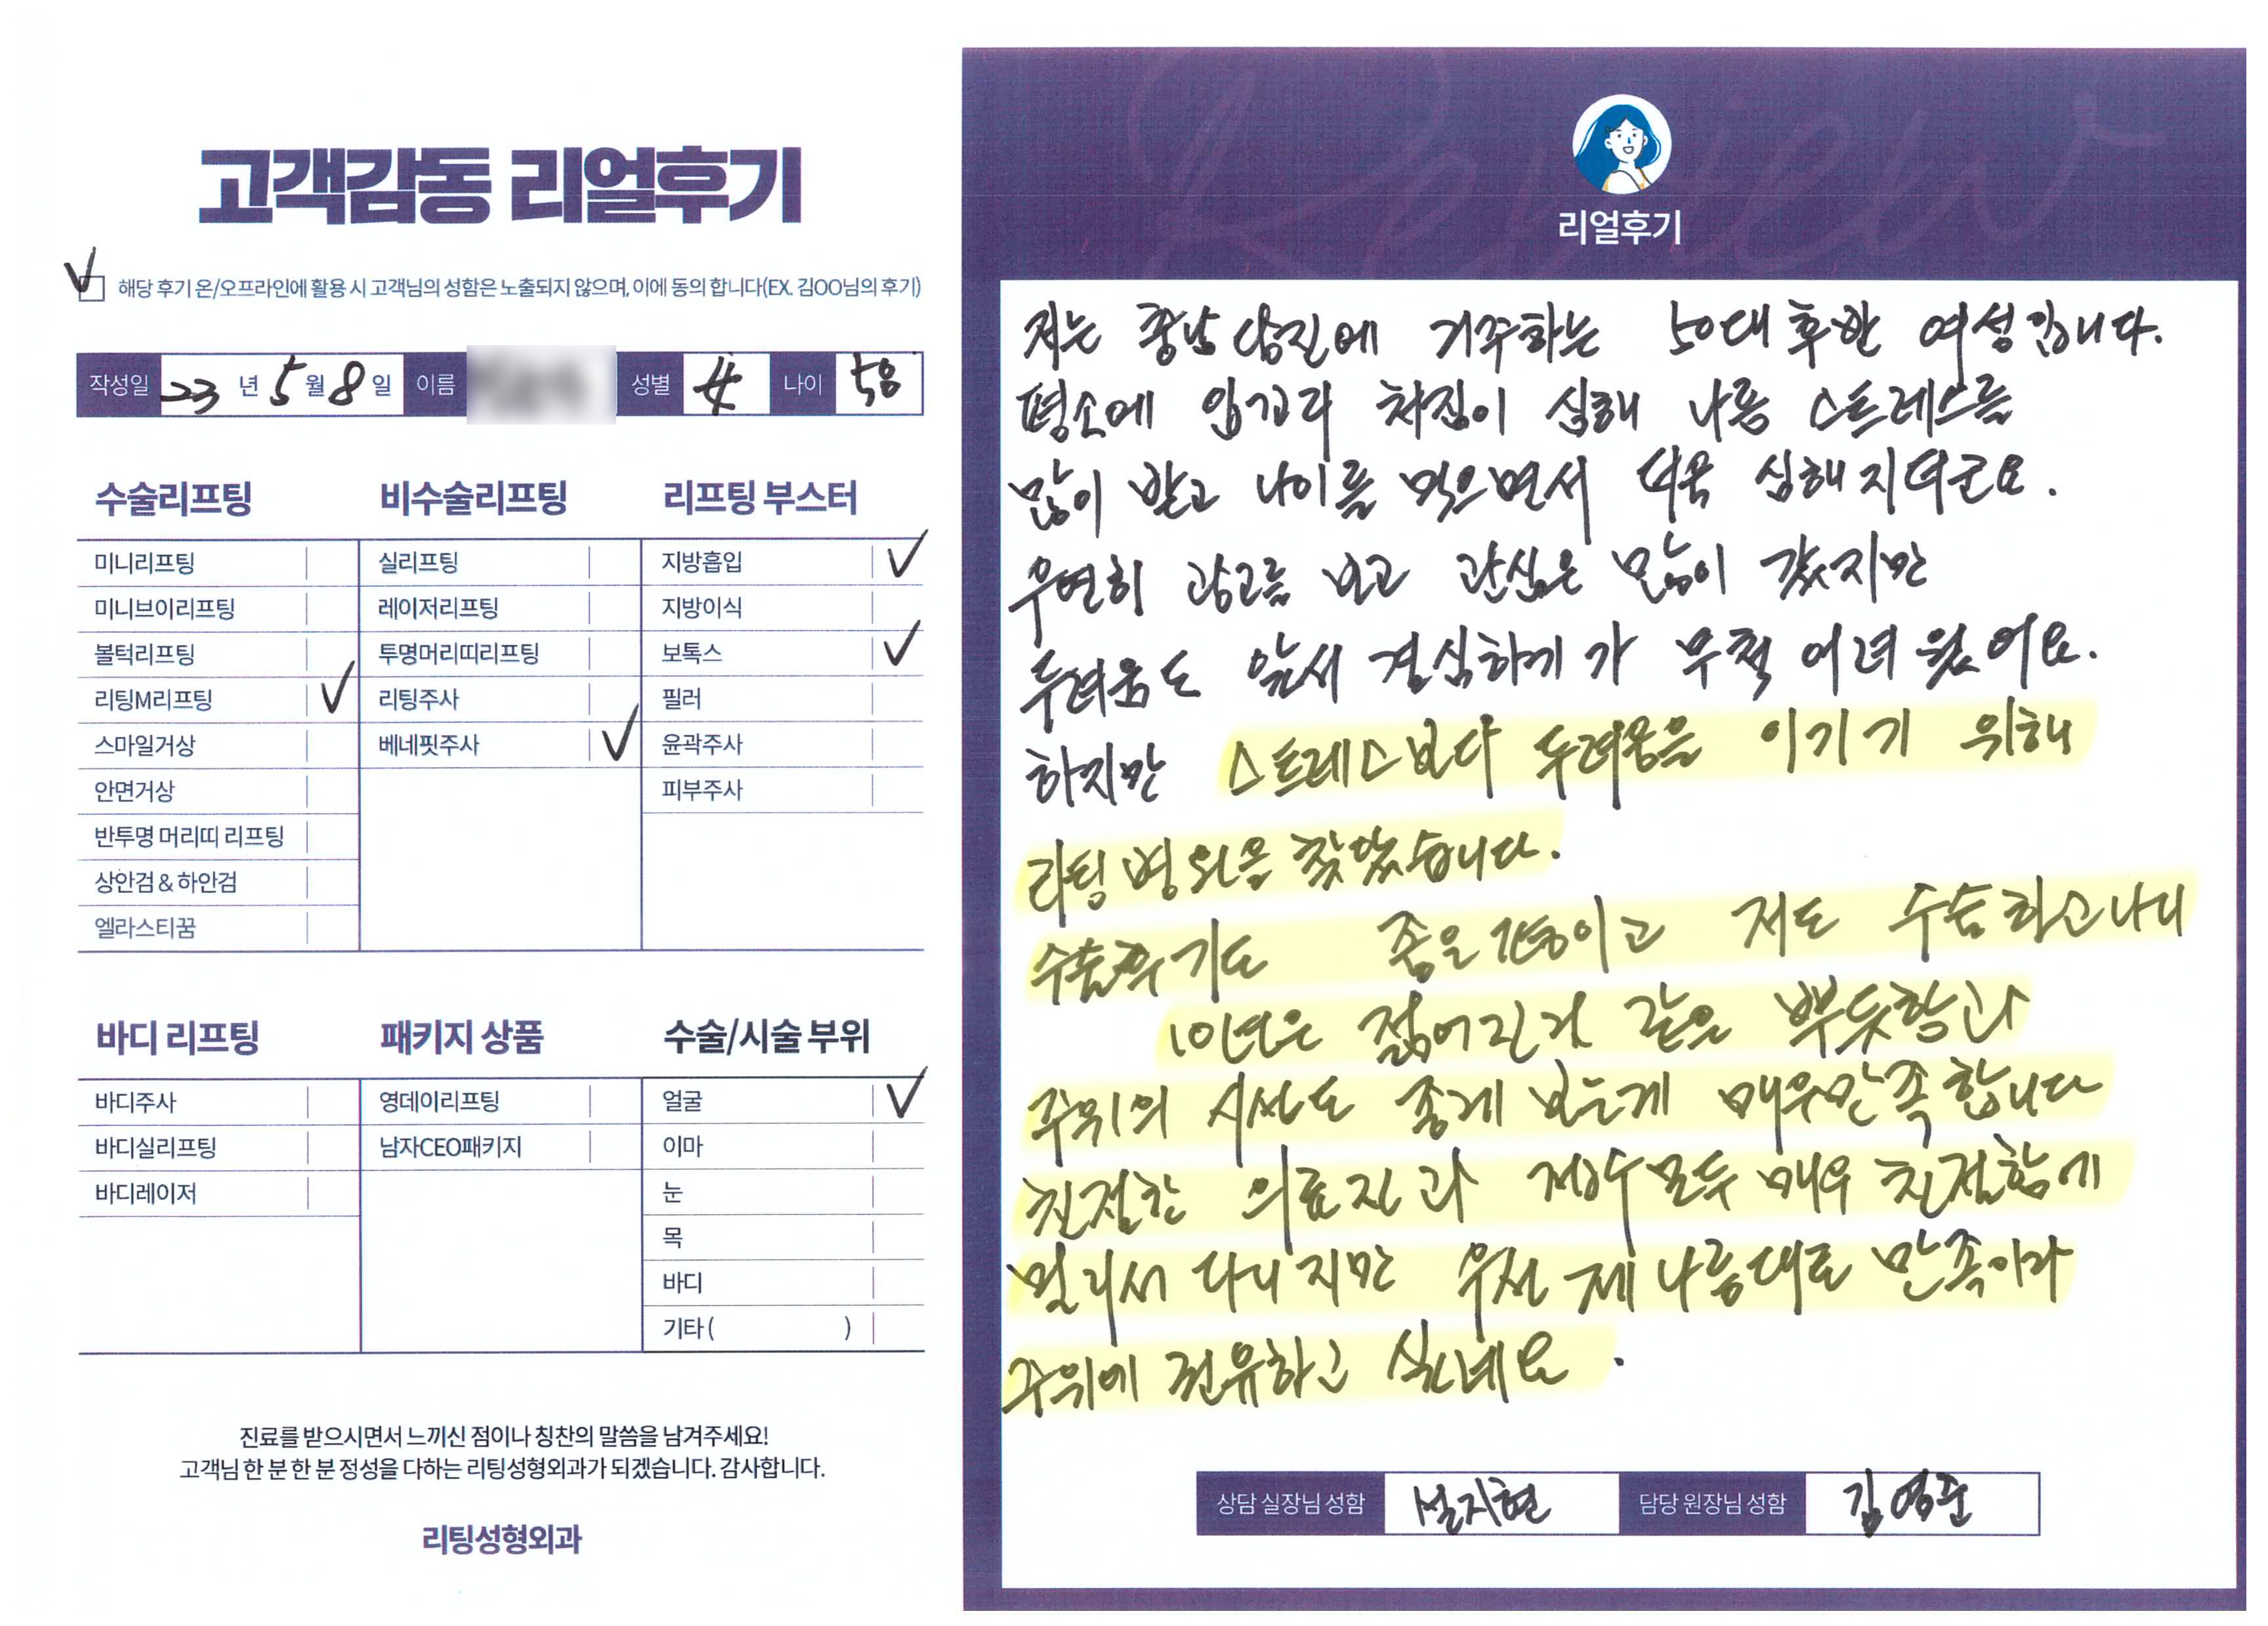 고객감동 리얼후기
해당 후기 온/오프라인에 활용 시 고객님의 성함은 노출되지 않으며, 이에 동의 합니다(EX. 김OO님의 후기)
작성일 23 년 5 월 8 일 이름 성별 女 나이 58
수술리프팅
미니리프팅
미니브이리프팅
볼턱리프팅
리팅M리프팅
스마일거상
안면거상
반투명 머리띠 리프팅
상안검 & 하안검
엘라스티꿈
비수술리프팅
실리프팅
레이저리프팅
투명머리띠리프팅
리팅주사
베네핏주사
리프팅 부스터
지방흡입
지방이식
보톡스
필러
윤곽주사
피부주사
바디 리프팅
바디주사
바디실리프팅
바디레이저
패키지 상품
영데이리프팅
남자CEO패키지
수술/시술 부위
얼굴
이마
눈
목
바디
기타 ( )
진료를 받으시면서 느끼신 점이나 칭찬의 말씀을 남겨주세요!
고객님 한 분 한 분 정성을 다하는 리팅성형외과가 되겠습니다. 감사합니다.
리팅성형외과
Review
리얼후기
저는 충남 당진에 거주하는 50대 후반 여성입니다.
평소에 입꼬리 처짐이 심해 나름 스트레스를
많이 받고 나이를 먹으면서 더욱 심해지더군요.
우연히 광고를 보고 관심은 많이 갔지만
두려움도 앞서 결심하기가 무척 어려웠어요.
하지만 스트레스보다 두려움을 이기기 위해
리팅병원을 찾았습니다.
수술후기도 좋은 이고 저도 수술하고나니
10년은 젊어진것 같은 뿌듯함과
주위의 시선도 좋게 보는게 매우만족합니다
친절한 의료진과 모두 매우 친절함에
멀리서 다니지만 우선 제 나름대로 만족이라
주위에 권유하고 싶네요.
상담 실장님 성함 설지현 담당 원장님 성함 김영준